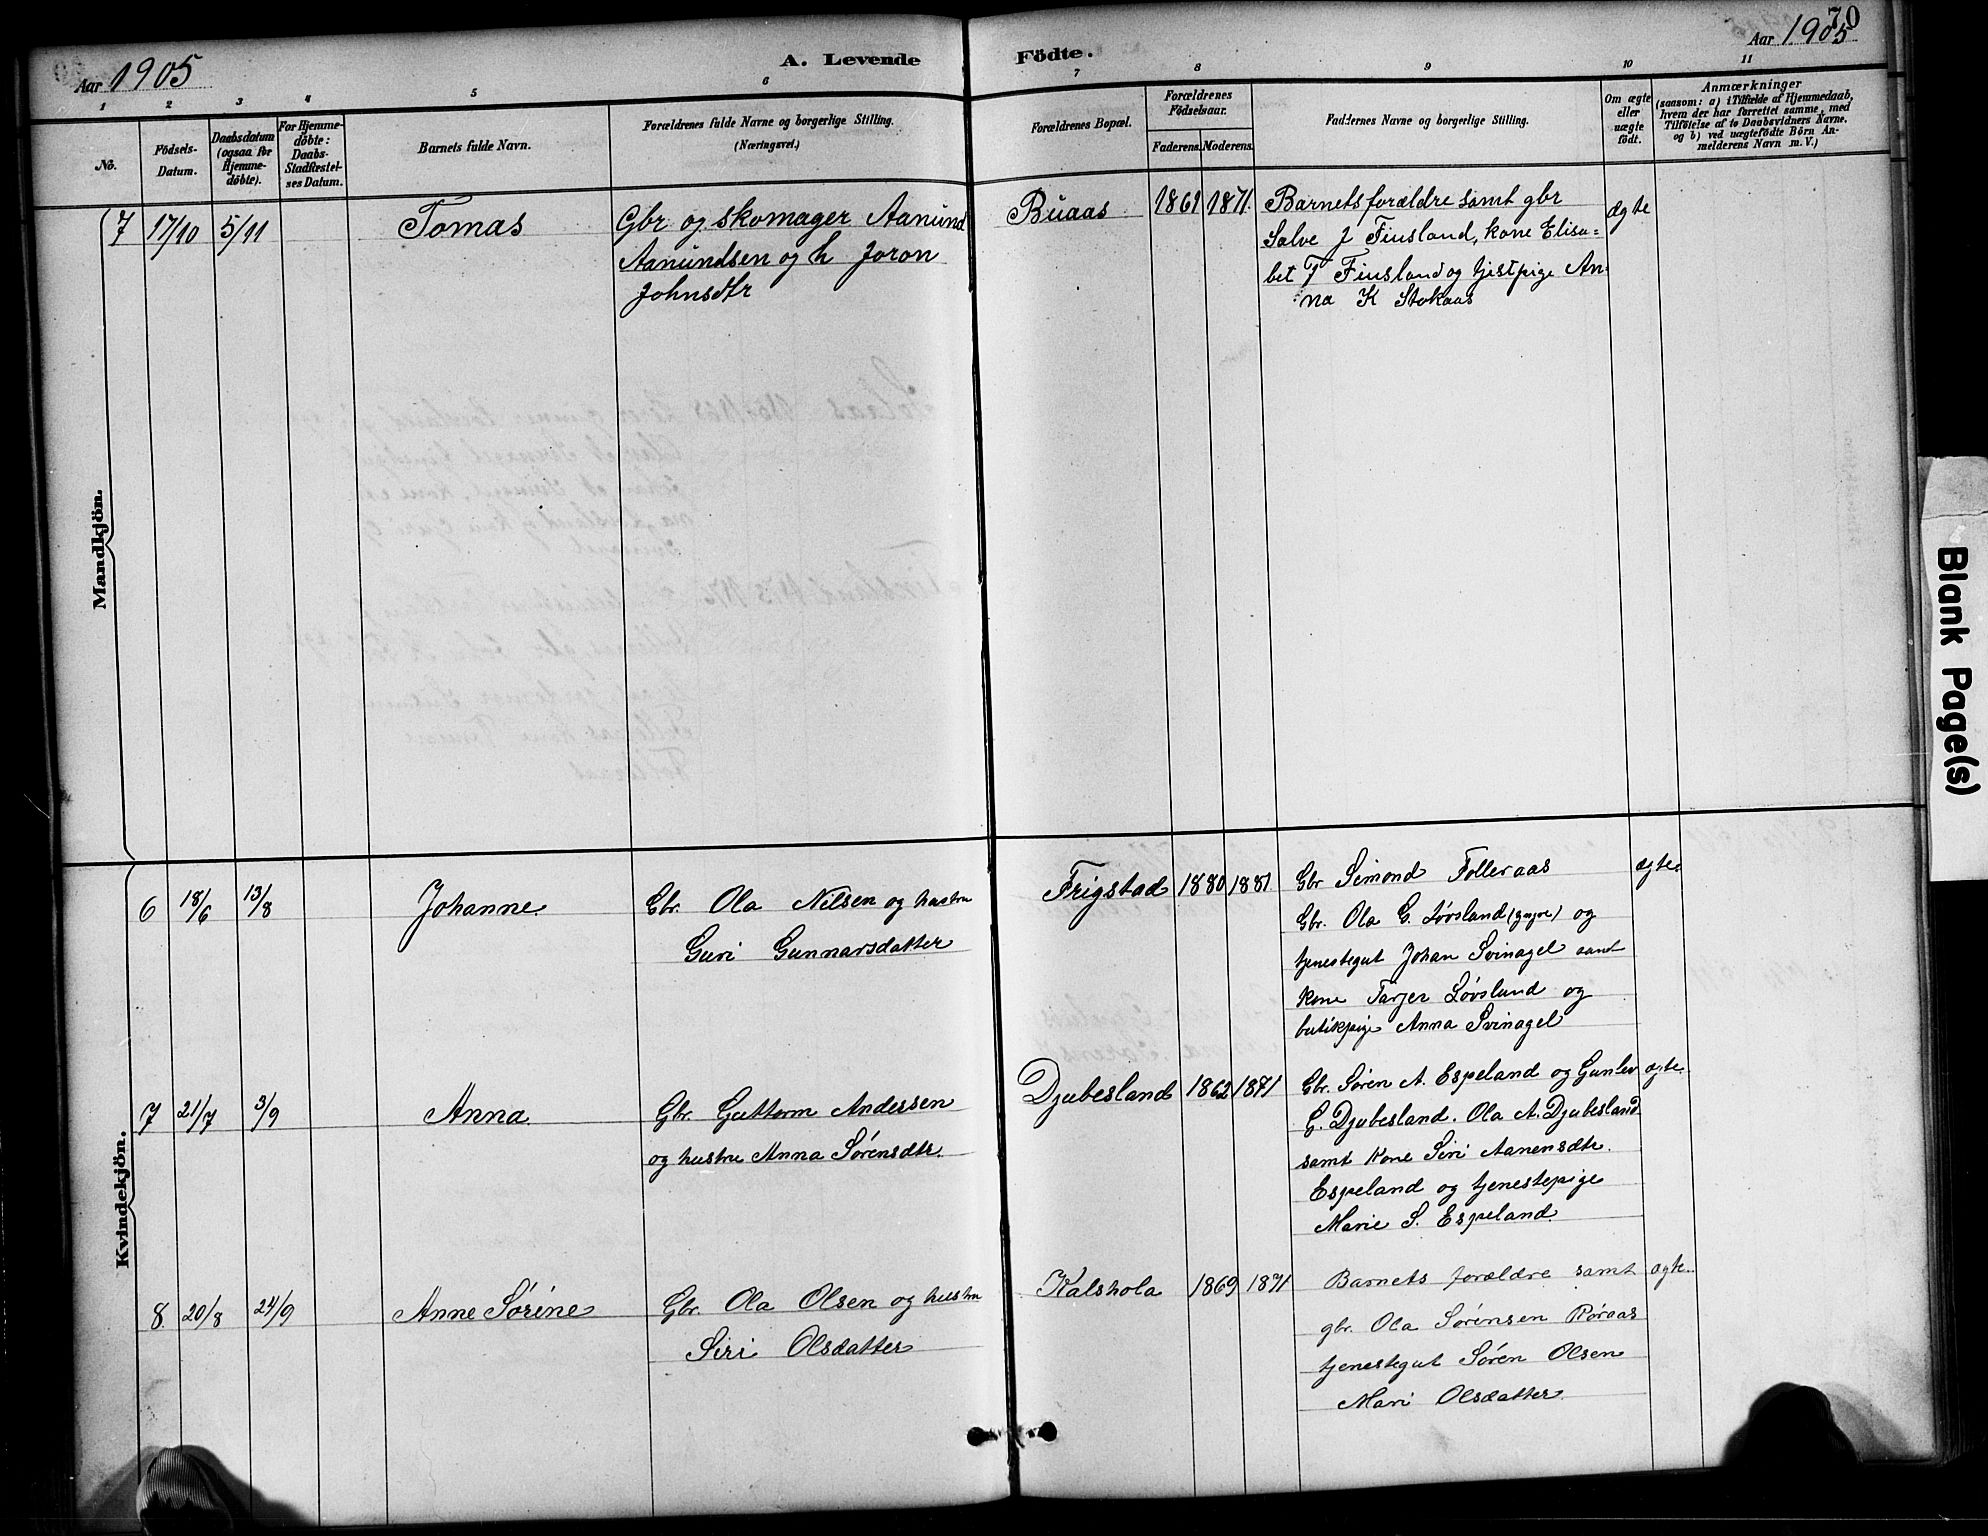 Aar 1905
A. Levende Födte.
Aar 1905
70
1 2 3 4 5 6 7 8 9 10 11
No.
Födsels-Datum.
Daabsdatum (ogsaa for Hjemme-döbte).
For Hjemme-döbte: Daabs-Stadfæstel-ses Datum.
Barnets fulde Navn.
Forældrenes fulde Navne og borgerlige Stilling.
(Næringsvei.)
Forældrenes Bopæl.
Forældrenes Födselsaar.
Faderens. Moderens.
Faddernes Navne og borgerlige Stilling.
Om ægte eller uægte födt.
Anmærkninger
(saasom: a) i Tilfælde af Hjemmedaab,
hvem der har forrettet samme, med
Tilföielse af to Daabsvidners Navne.
og b) ved uægtefödte Börn An-
melderens Navn m. V.)
Mandkjön.
7 17/10 5/11 Tomas
Gbr og skomager Aanund
Aanundsen og h Joron
Johnsdtr
Buaas 1861 1871.
Barnets forældre samt gbr
Salve J Finsland, kone Elisa=
bet T Finsland og tjistpige An=
na K Stokaas
ægte
Kvindekjön.
6 18/6 13/8 Johanne
Gbr. Ola Nilsen og hustru
Guri Gunnarsdatter
Frigstad 1880 1881
Gbr Simond Folleraas
Gbr. Ola G. Løvsland og
tjenestegut Johan Svinagel samt
kone Tarjer Løvsland og
butikpige Anna Svinagel
ægte.
7 21/7 3/9 Anna.
Gbr. Guttorm Andersen
og hustru Anna Sørensdtr.
Djubesland 1862 1871
Gbr. Søren A. Espeland og Gunlev
G. Djubesland. Ola A. Djubesland
samt Kone Siri Aanensdtr.
Espeland og tjenestepige
Marie S. Espeland.
ægte.
8. 20/8 24/9 Anne Sørine
Gbr. Ola Olsen og hustru
Siri Olsdatter
Kalshola 1869 1871
Barnets forældre samt
gbr. Ola Sørensen Røraas
tjenestegut Søren Olsen
Mari Olsdatter.
ægte.
Blank Page(s)